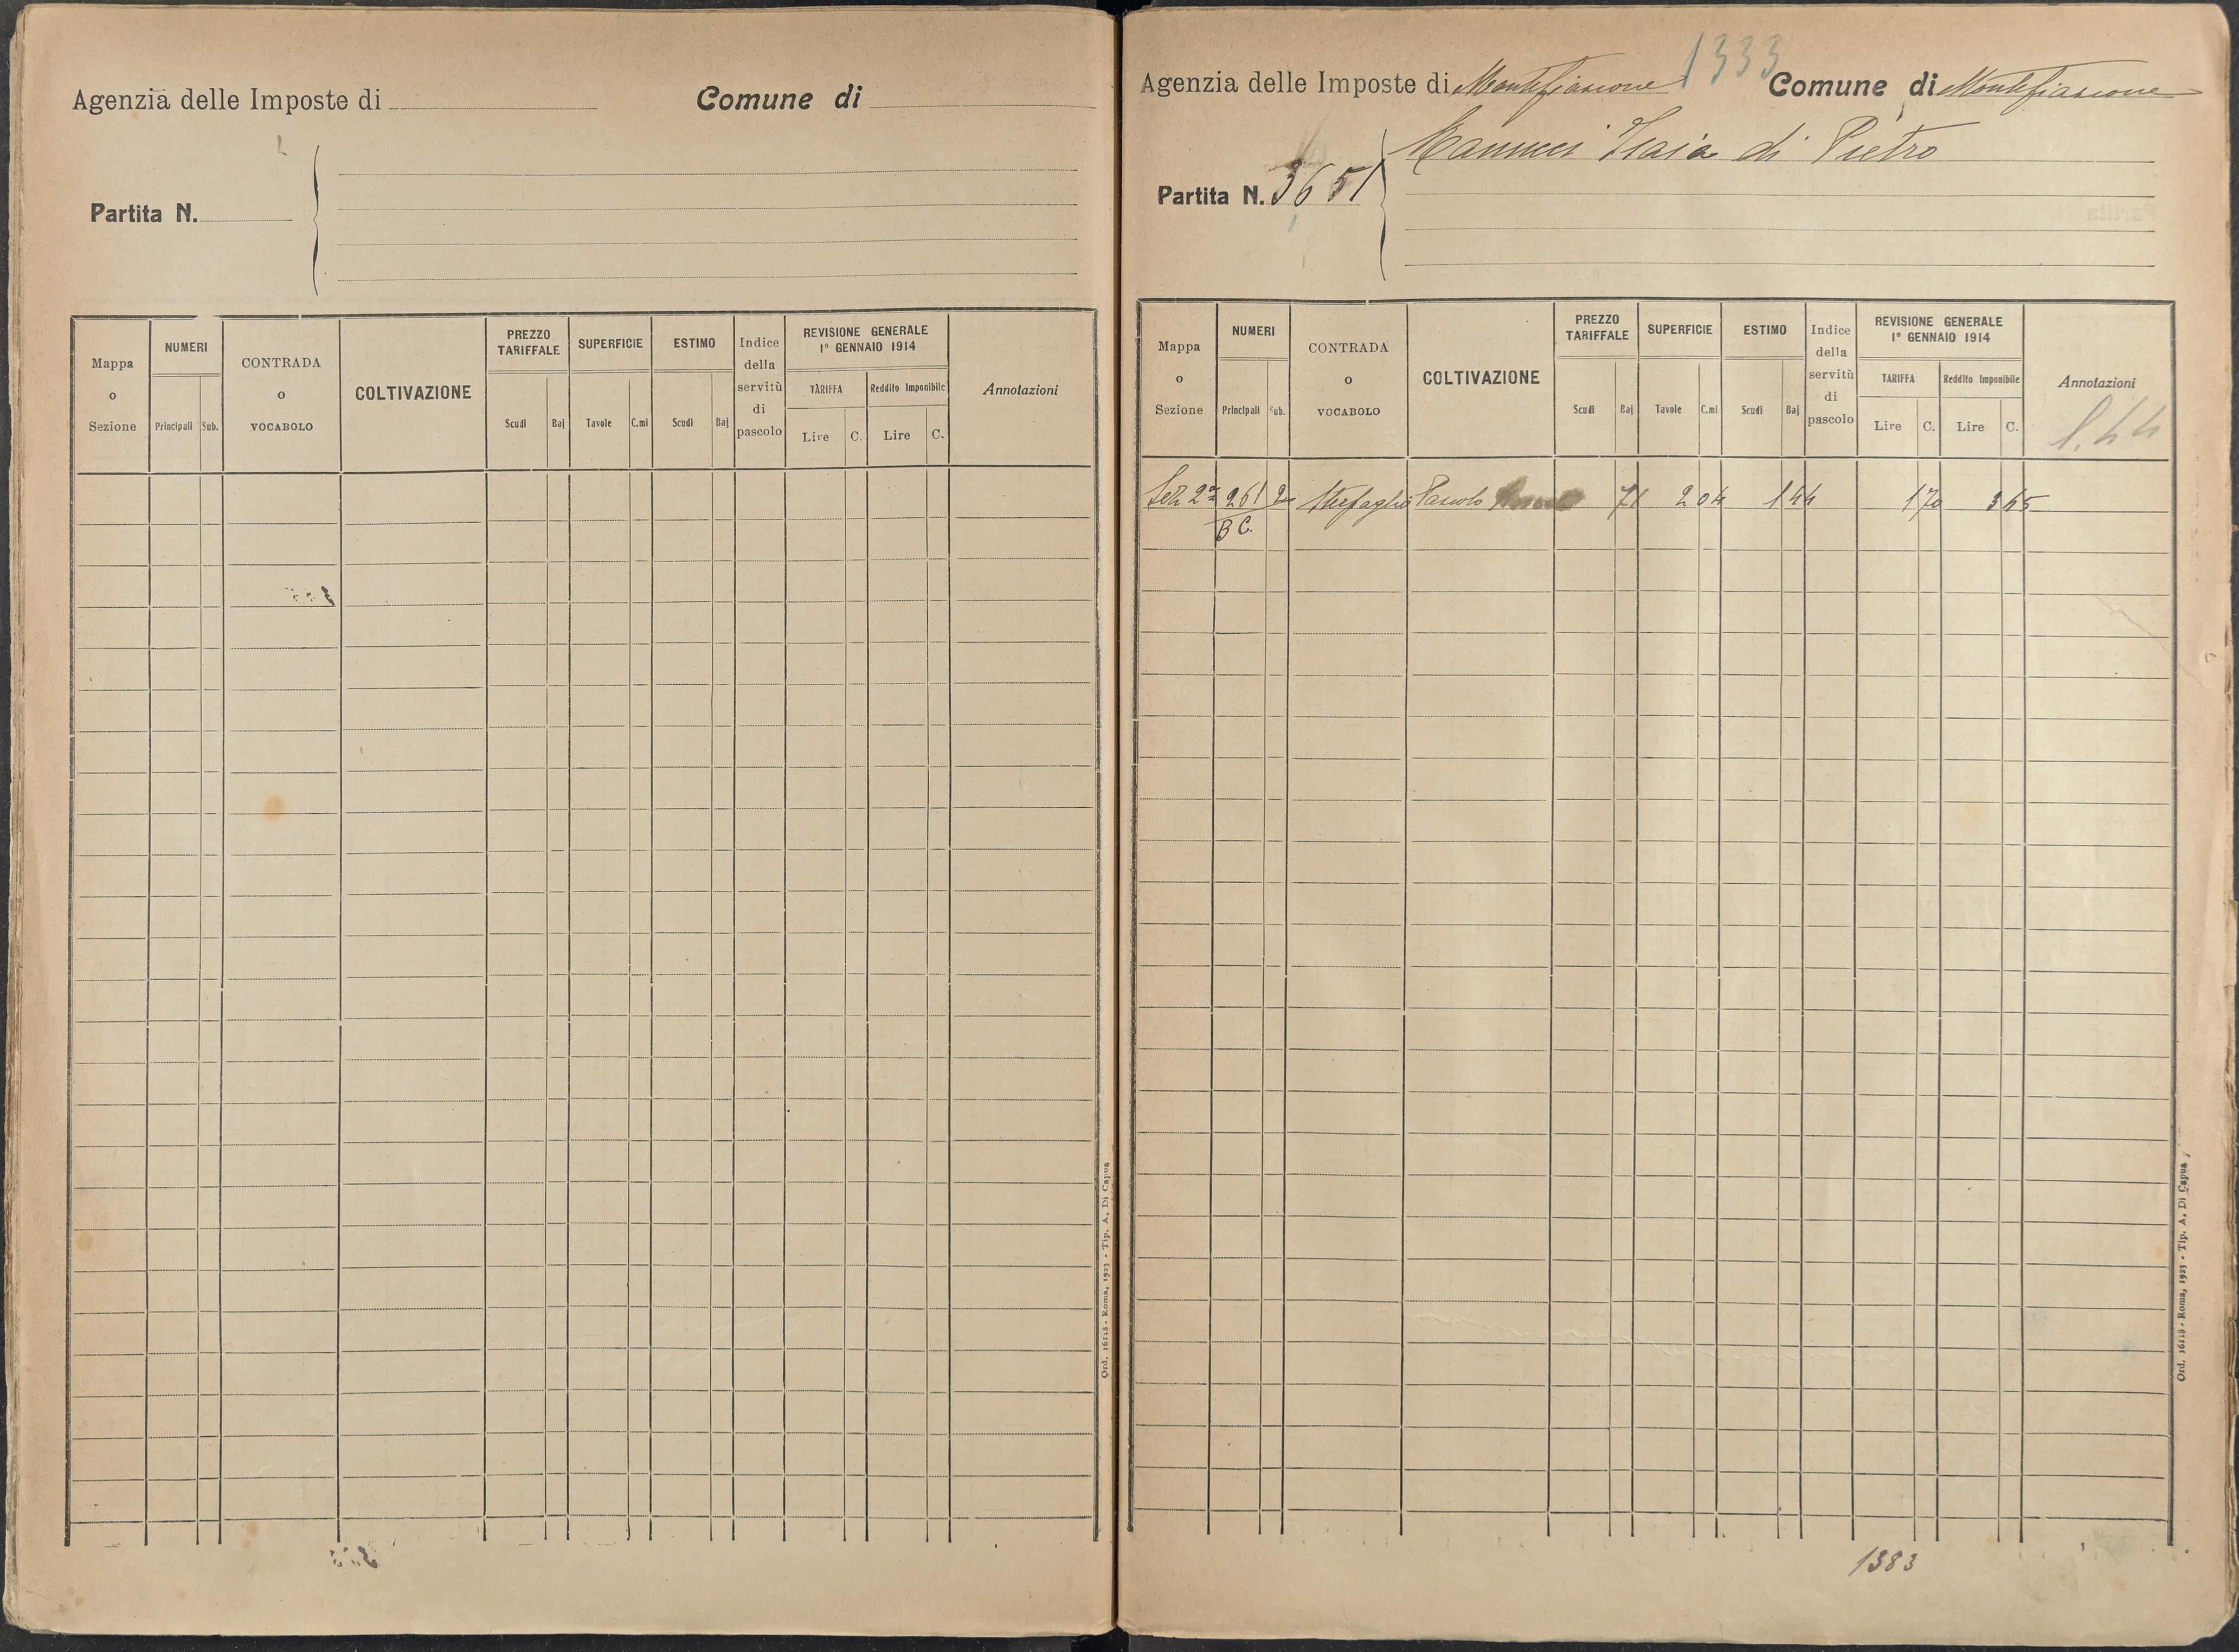 Agenzia delle Imposte di
Comune di
Partita N.
Mappa o Sezione
NUMERI
Principali
Sub.
CONTRADA o VOCABOLO
COLTIVAZIONE
PREZZO TARIFFALE
Scudi
Baj
SUPERFICIE
Tavole
C.mi
ESTIMO
Scudi
Baj
Indice della servitù di pascolo
REVISIONE GENERALE
1° GENNAIO 1914
TARIFFA
Lire
C.
Reddito Imponibile
Lire
C.
Annotazioni
Ord. 16118 - Roma, 1923 - Tip. A. Di Capua
1333
Agenzia delle Imposte di Montefiascone
Comune di Montefiascone
Isaia di Pietro
Partita N. 3651
Mappa o Sezione
NUMERI
Principali
Sub.
CONTRADA o VOCABOLO
COLTIVAZIONE
PREZZO TARIFFALE
Scudi
Baj
SUPERFICIE
Tavole
C.mi
ESTIMO
Scudi
Baj
Indice della servitù di pascolo
REVISIONE GENERALE
1° GENNAIO 1914
TARIFFA
Lire
C.
Reddito Imponibile
Lire
C.
Annotazioni
1.44
Sez 2ª 261 2 Pascolo 71 2 04 1 44 1 70 3 65
B C.
Ord. 16118 - Roma, 1923 - Tip. A. Di Capua
1383